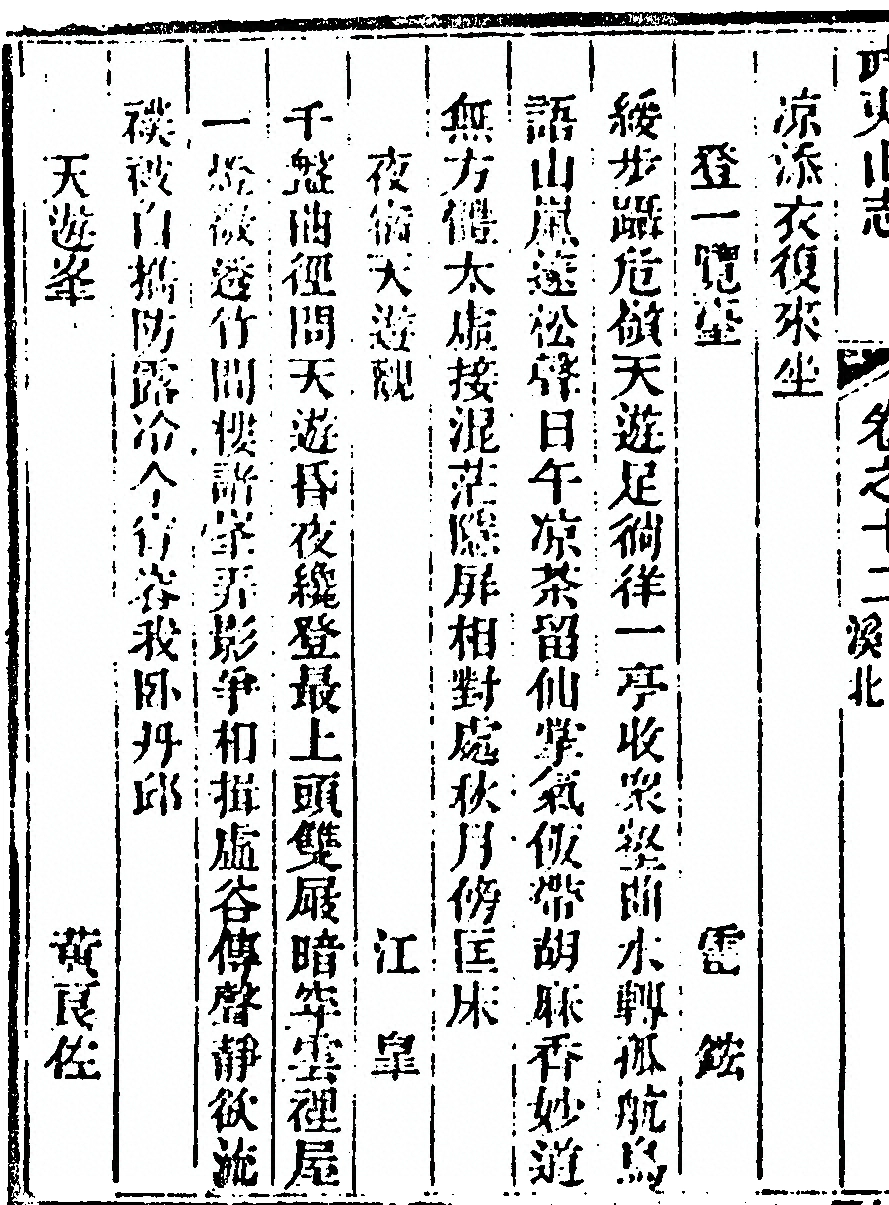 武夷山志 卷之十二 溪北
凉添衣復來坐
登一覽臺 雷鋐
緩步躡危嶔天遊足徜徉一亭收衆壑曲水轉孤航鳥
語山嵐逵松聲日午凉茶留仙掌氣飯帶胡麻香妙道
無方體太虛接混茫隱屏相對處秋月傍匡床
夜宿天遊觀 江皐
千盤曲徑問天遊昏夜纔登最上頭雙屐暗穿雲裡屋
一燈微透竹間樓諸峯弄影爭相揖虛谷傳聲靜欲流
襆被自攜防露冷今宵容我卧丹邱
天遊峯 黃良佐